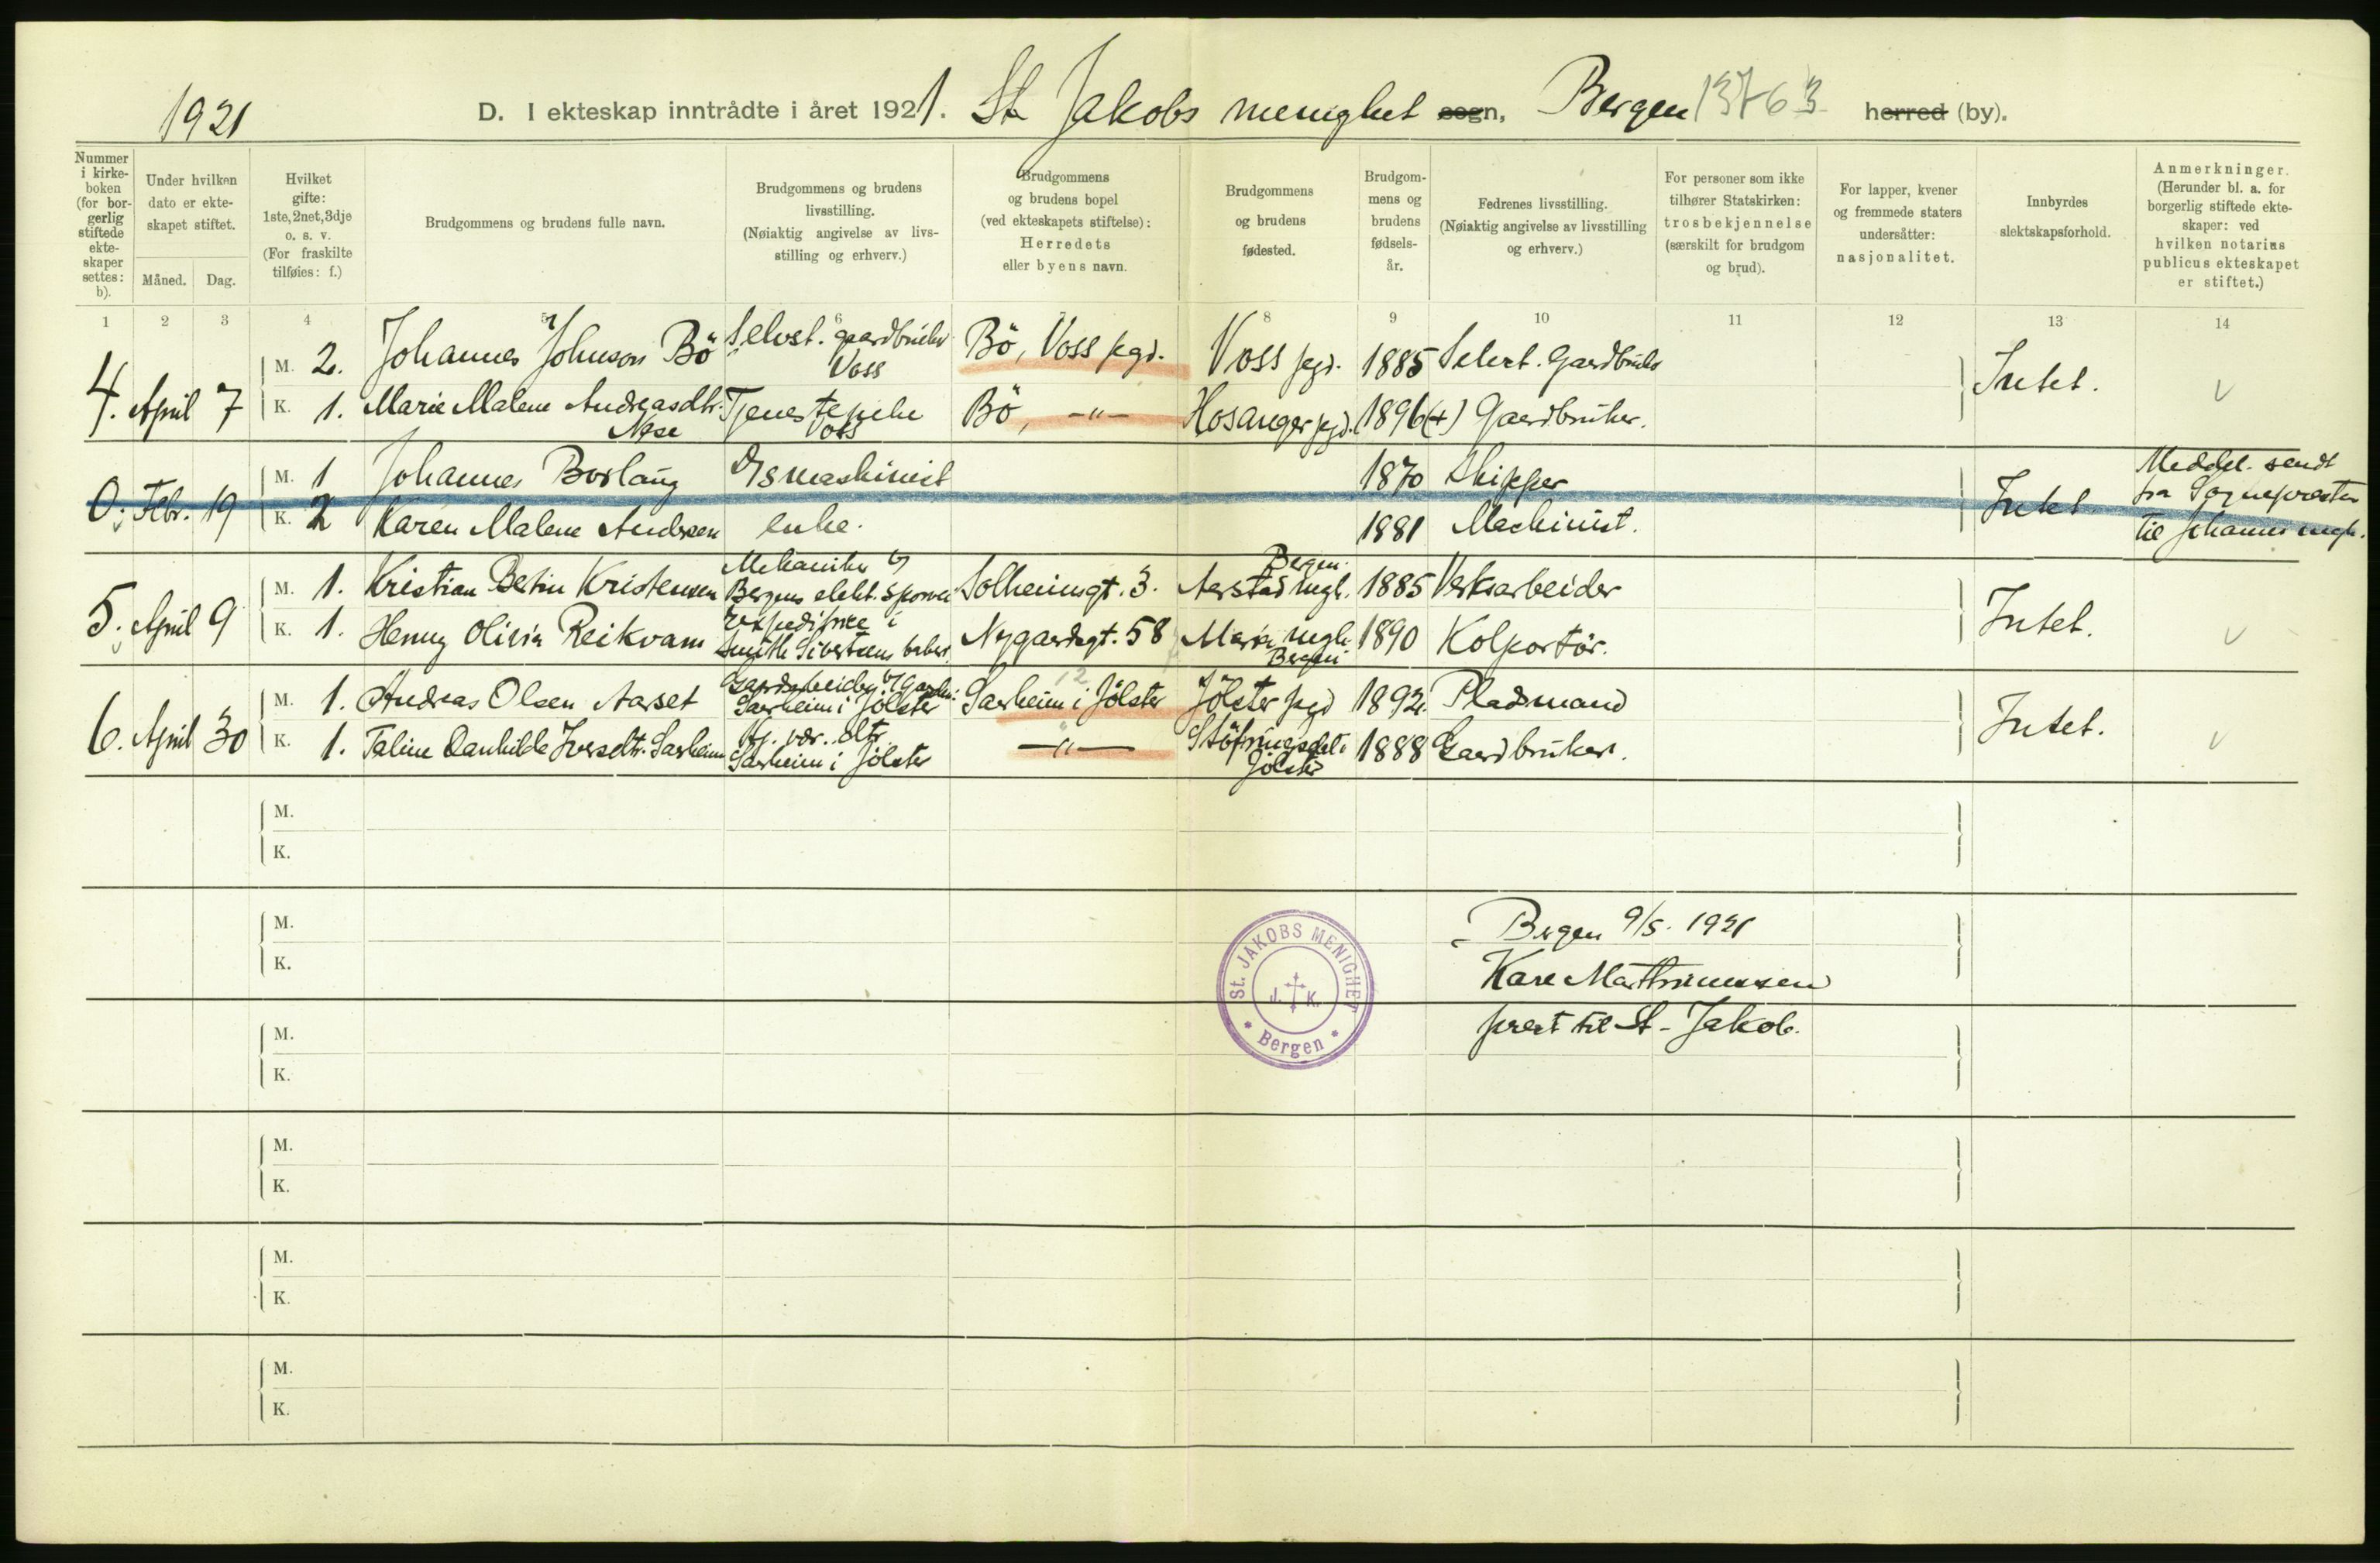 1921
D. I ekteskap inntrådte i året 1921. St Jakobs menighet sogn, Bergen 13763 herred (by).
Nummer i kirke-boken (for bor-gerlig stiftede ekte-skaper settes: b).
Under hvilken dato er ekte-skapet stiftet.
Måned.
Dag.
Hvilket gifte: 1ste, 2net, 3dje o. s. v. (For fraskilte tilføies: f.)
Brudgommens og brudens fulle navn.
Brudgommens og brudens livsstilling. (Nøiaktig angivelse av livs-stilling og erhverv.)
Brudgommens og brudens bopel (ved ekteskapets stiftelse): Herredets eller byens navn.
Brudgommens og brudens fødested.
Brudgom-mens og brudens fødsels-år.
Fedrenes livsstilling. (Nøiaktig angivelse av livsstilling og erhverv.)
For personer som ikke tilhører Statskirken: trosbekjennelse (særskilt for brudgom og brud).
For lapper, kvener og fremmede staters undersåtter: nasjonalitet.
Innbyrdes slektskapsforhold.
Anmerkninger. (Herunder bl. a. for borgerlig stiftede ekte-skaper: ved hvilken notarius publicus ekteskapet er stiftet.)
1 2 3 4 5 6 7 8 9 10 11 12 13 14
4. April 7 M. 2. Johannes Johnson Bö Selvst. gaardbruker Voss Bö, Voss pgd. Voss pgd. 1885 Selvst. Gaardbruker Intet. v
K. 1. Marie Malene Andreasdtr. Nese Tjenestepike Voss Bö, -"- Hosanger pgd. 1896 (+) Gaardbruker.
0. Febr. 19 M. 1 Johannes Borlaug Ismaskinist 1870 Skipper Intet Meddel. sendt fra Sognepresten til Johannes mgh.
K. 2 Karen Malene Andersen enke. 1881 Maskinist.
5. April 9 M. 1. Kristian Bertin Kristensen Mekaniker v Bergens elekt. sporvei Solheimsgt. 3. Aarstad mgh. Bergen. 1885 Verksarbeider Intet. v
K. 1. Henny Olivia Reikvam i Smith Sivertsens Nygaardsgt. 58 Maria mgh. Bergen 1890 Kolportör.
6. April 30 M. 1. Andreas Olsen Aarset Gaardsarbeider Saxheim i Jölster 12 Saxheim i Jölster Jölster pgd 1892. Pladsmand Intet. v
K. 1. Taline Danhilde Iversdtr. Saxheim Hj. vær. dtr. Saxheim i Jölster -"- Jölster 1888 Gaardbruker.
M.
K.
M.
K.
St. JAKOBS MENIGHET
J. K.
* Bergen *
Bergen 9/5. 1921
prest til St. Jakob.
M.
K.
M.
K.
M.
K.
M.
K.